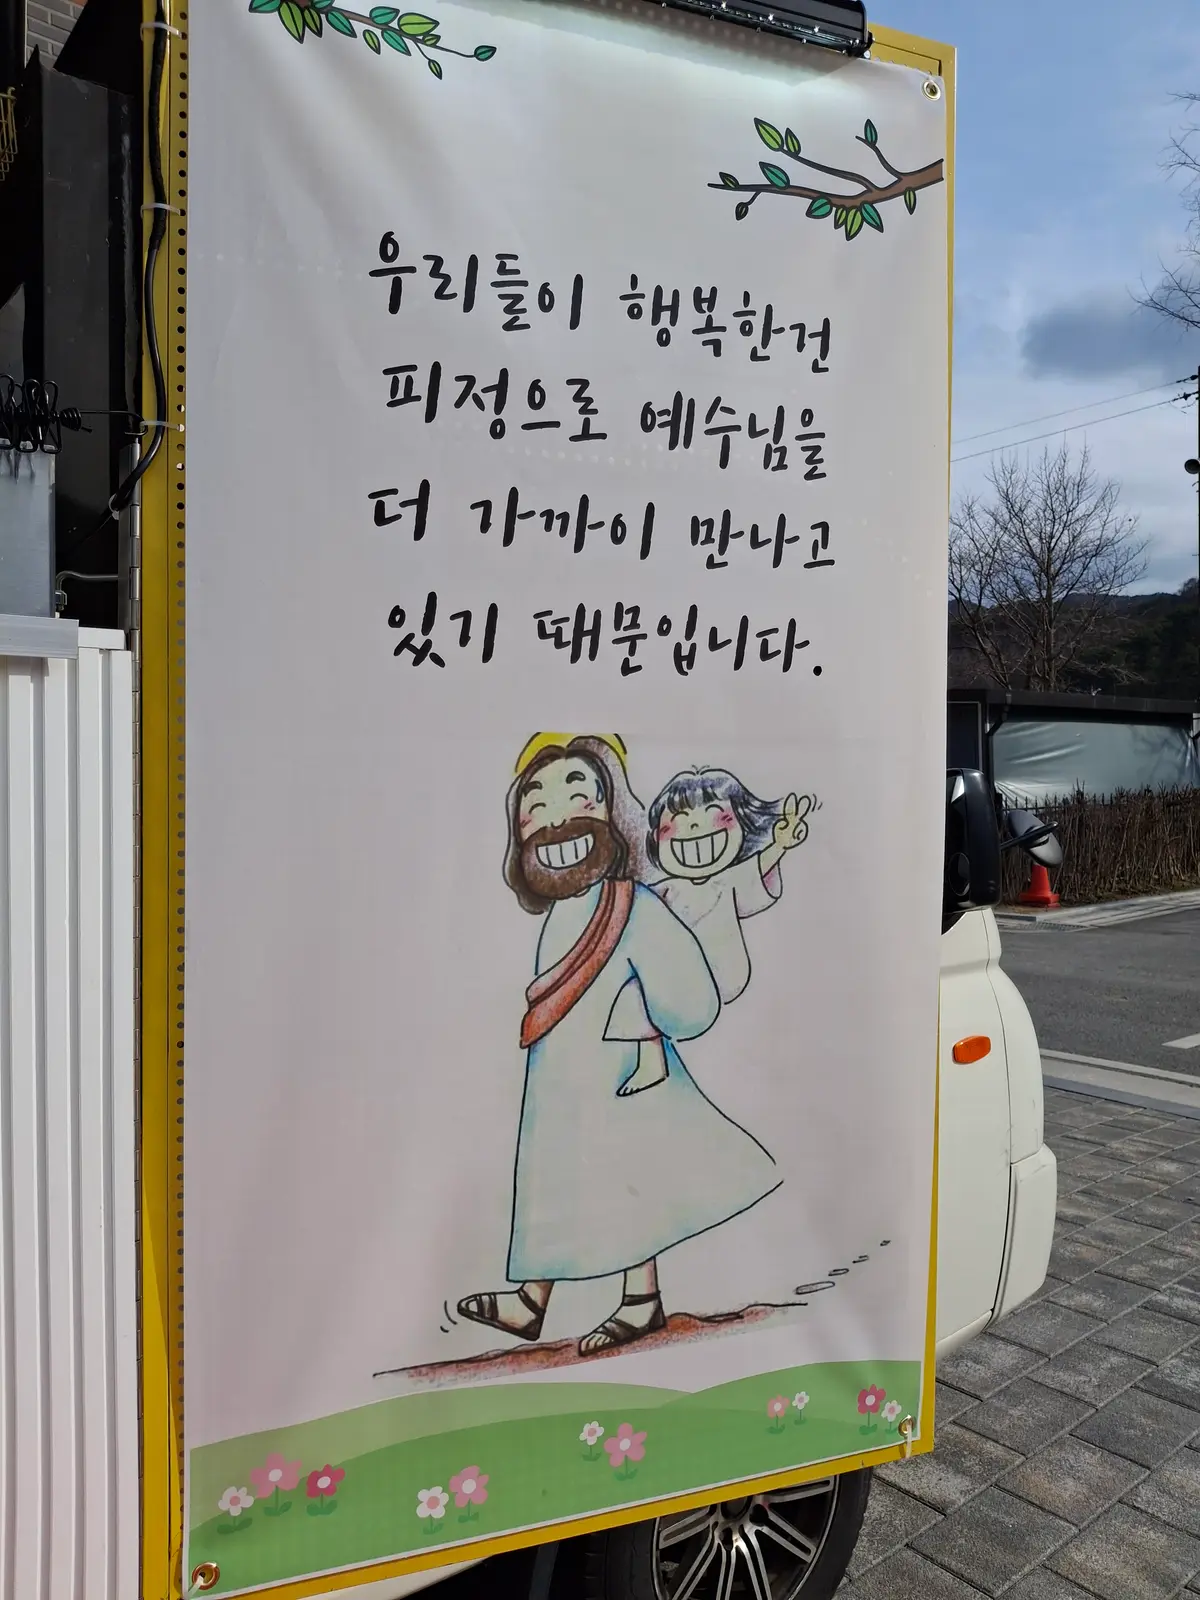 우리들이 행복한건
피정으로 예수님을
더 가까이 만나고
있기 때문입니다.